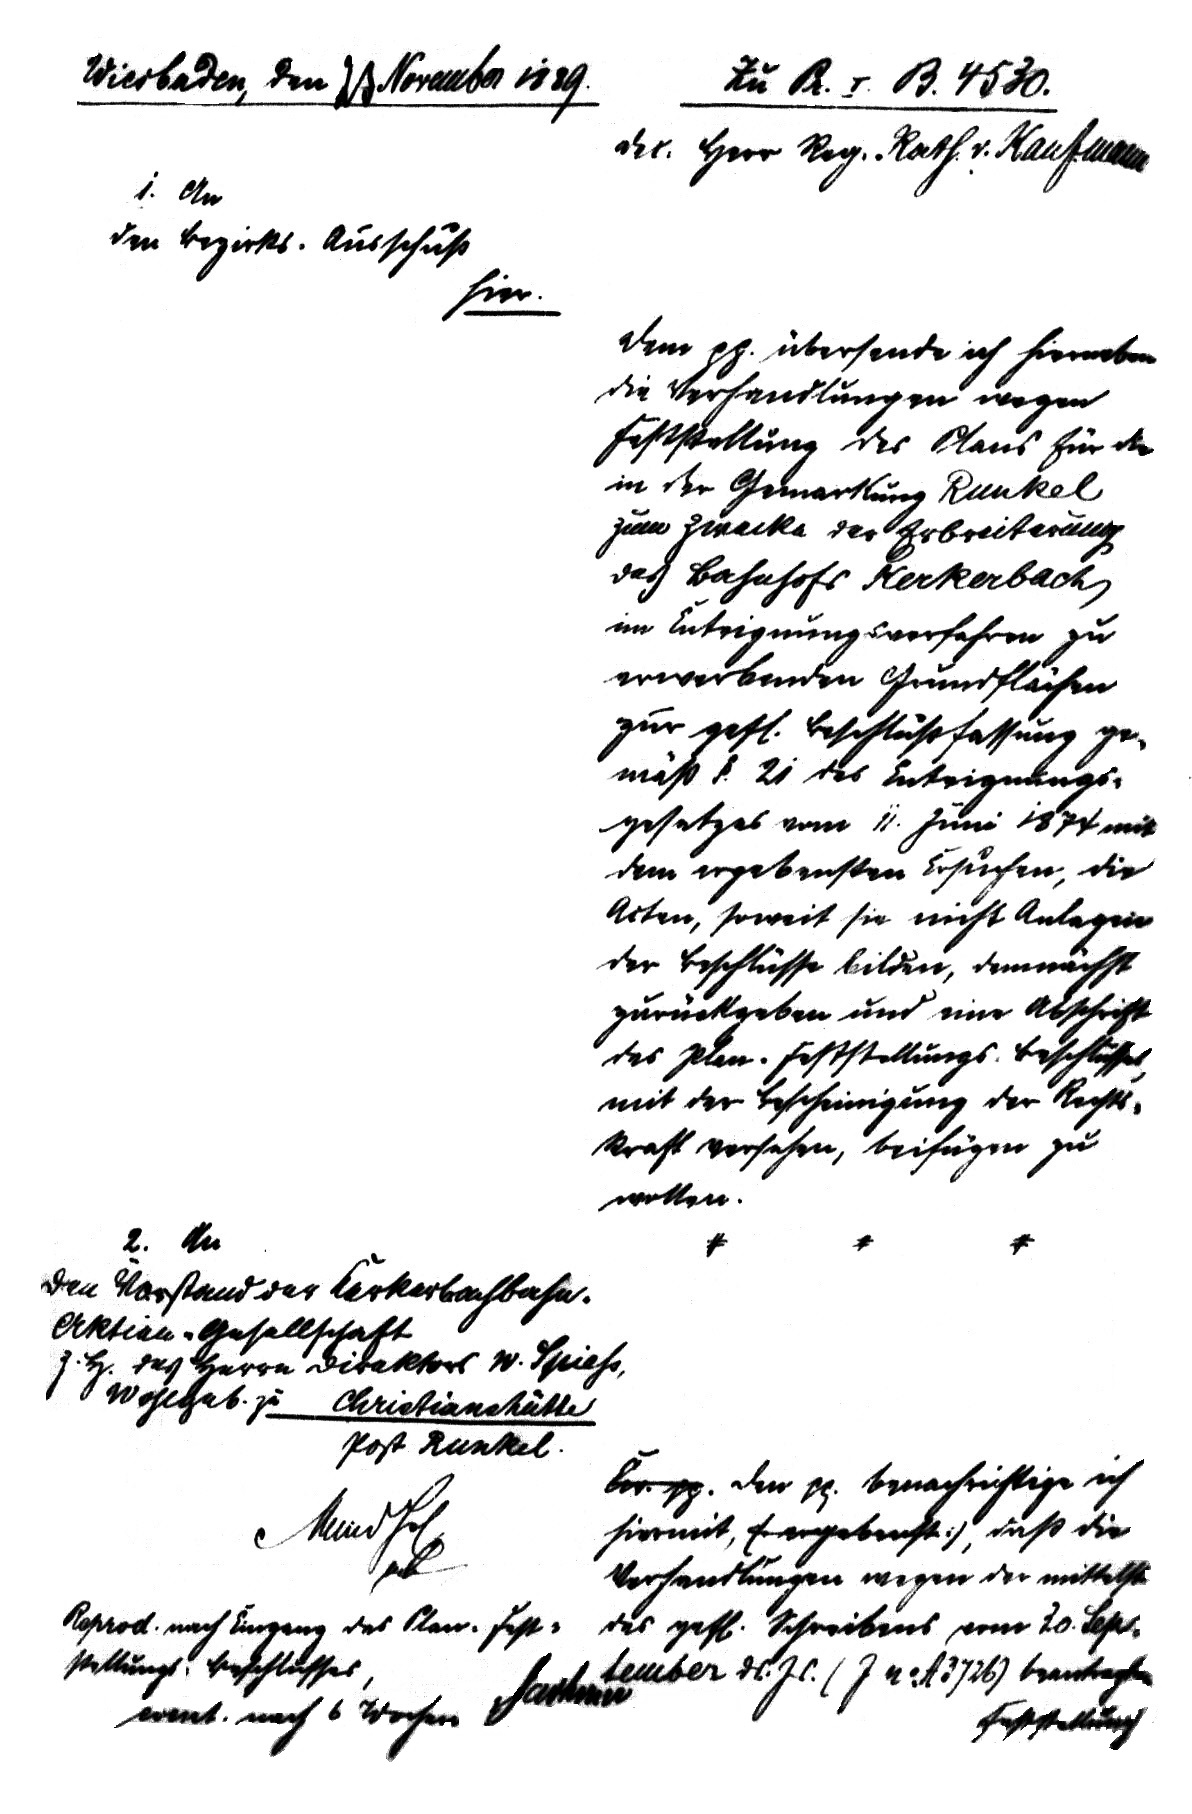 Wiesbaden, den November 1889.
Zu Pr. I. B. 4530.
dec. Herr Reg.-Rath v. Kaufmann
1. An
den Bezirks-Ausschuß
hier.
Dem pp. übersende ich hierneben
die Verhandlungen wegen
Feststellung des Plans für die
in der Gemarkung Runkel
zum Zwecke der Erbreiterung
des Bahnhofs Kerkerbach
im Enteignungsverfahren zu
erwerbenden Grundflächen
zur gefl. Beschlußfassung ge-
mäß §. 21 des Enteignungs-
gesetzes vom 11. Juni 1874 mit
dem ergebensten Ersuchen, die
Acten, soweit sie nicht Anlagen
der Beschlüsse bilden, demnächst
zurückgeben und eine Abschrift
des Plan-Feststellungs-Beschlusses,
mit der Bescheinigung der Rechts-
kraft versehen, beifügen zu
wollen.
2. An
den Vorstand der Kerkerbachbahn-
Aktien-Gesellschaft
z. H. des Herrn Direktors W. Spiehs,
Wohlgeb. zu Christianshütte
Post Runkel.
Reprod. nach Eingang des Plan-Fest-
stellungs-Beschlusses,
event. nach 6 Wochen
Ew. pp. Den pp. benachrichtige ich
hiermit, (:ergebenst:), daß die
Verhandlungen wegen der mittelst
des gefl. Schreibens vom 20. Sep-
tember ds. Js. (J No A 3726) beantragten
Feststellung